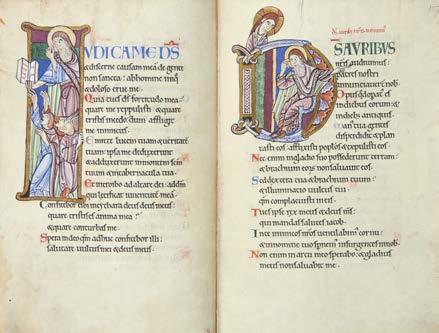 IUDICA ME DS
& discerne causam meā de gente
non sancta: ab homine iniq
& doloso erue me.
Quia tu es ds fortitudo mea:
quare me reppulisti: & quare
tristis incedo dum affligit
me inimicus.
Emitte lucem tuam & ueritatē
tuam: ipsa me deduxerunt
& adduxerunt in montem scm
tuum & in tabernacula tua.
Et introibo ad altare dei: ad dm
qui letificat iuuentutē meā.
Confitebor tibi in cythara deus deus meus:
quare tristis es anima mea
& quare conturbas me.
Spera in deo qm adhuc confitebor illi:
salutare uultus mei & deus meus.
DS AURIBUS
nris audiuimus:
patres nostri
annuntiauerunt nob
Opus qd opat' es
in diebus eorum &
in diebs antiquis.
Manus tua gentes
disperdidit & plan
tasti eos: afflixisti populos & expulisti eos
Nec enim in gladio suo possederunt terram:
& brachium eorum non saluauit eos.
Sed dextera tua & brachium tuum:
& illuminatio uultus tui
qm complacuisti in eis.
Tu es ipse rex meus & deus ms:
qui mandas salutes iacob.
In te inimicos nros uentilabim' cornu:
& in nomine tuo spnem' insurgentes in nob.
Non enim in arcu meo sperabo: & gladius
meus non saluabit me.